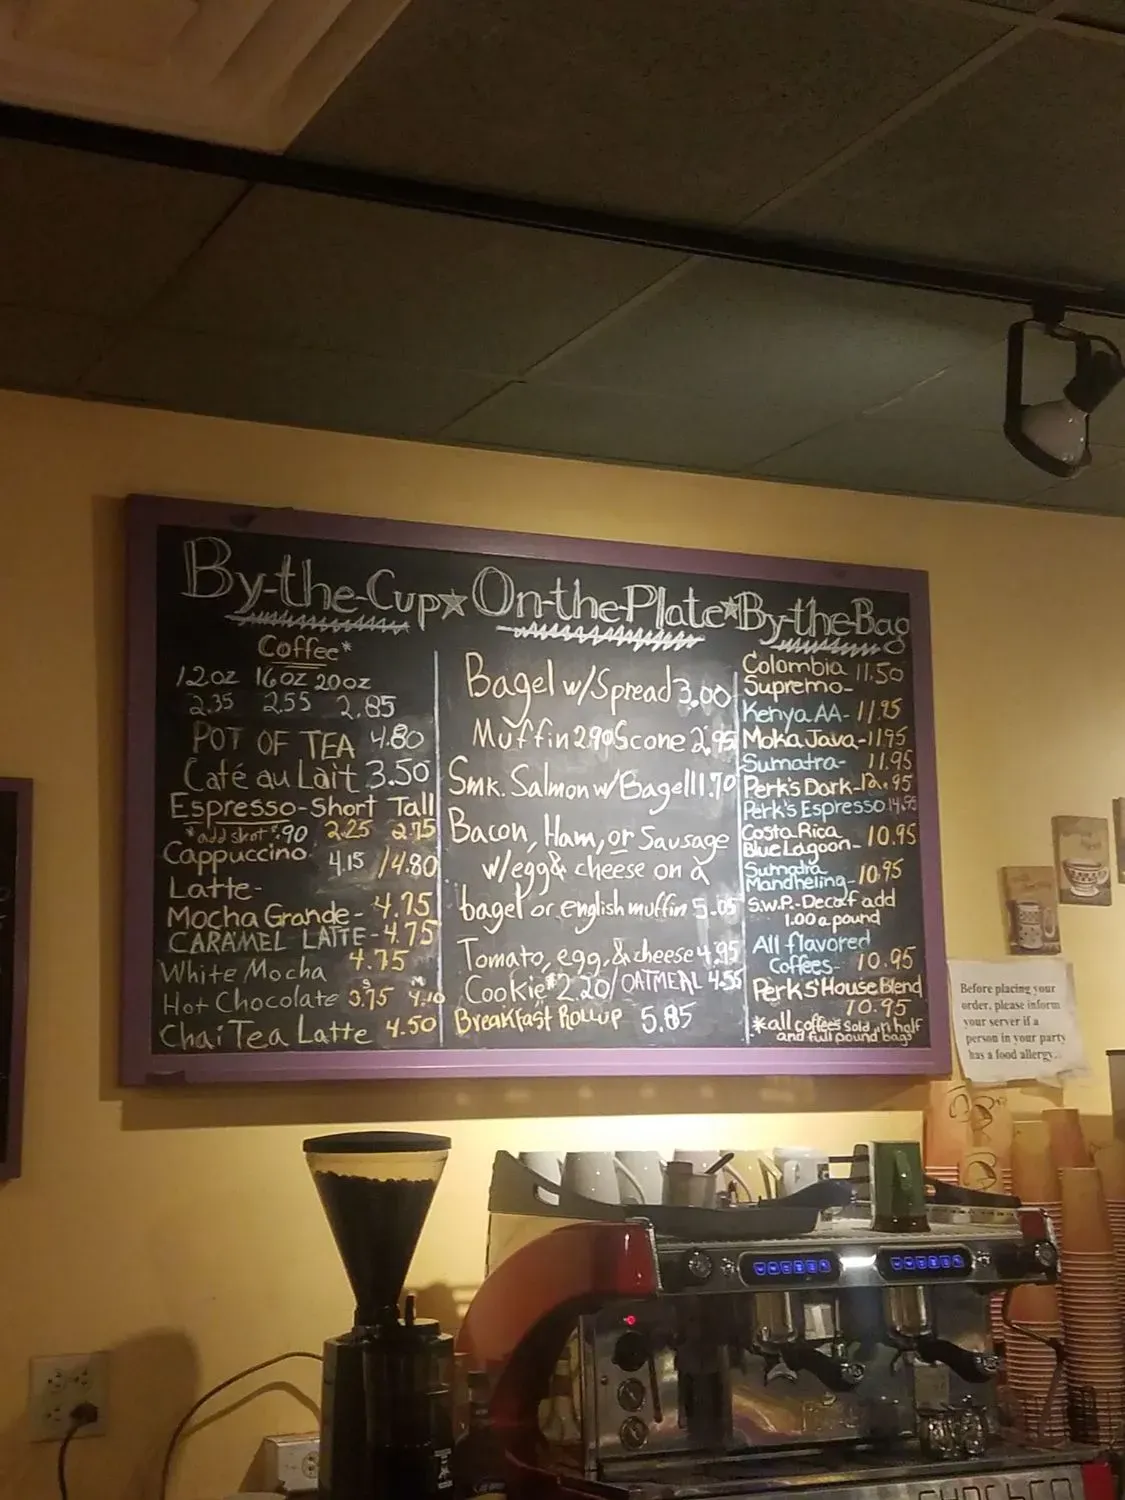 By-the-Cup★On-the-Plate★By-the-Bag
Coffee*
12oz 16oz 20oz
2.35 2.55 2.85
POT OF TEA 4.80
Café au Lait 3.50
Espresso-Short Tall
*add shot .90 2.25 2.75
Cappuccino 4.15 /4.80
Latte-
Mocha Grande- 4.75
CARAMEL LATTE-4.75
White Mocha 4.75
S M
Hot Chocolate 3.75 4.10
Chai Tea Latte 4.50
Bagel w/Spread 3.00
Muffin 2.90 Scone 2.95
Smk. Salmon w/Bagel 11.70
Bacon, Ham, or Sausage
w/egg & cheese on a
bagel or english muffin 5.05
Tomato, egg, & cheese 4.95
Cookie 2.20/OATMEAL 4.55
Breakfast Rollup 5.85
Colombia 11.50
Supremo-
Kenya AA- 11.95
Moka Java-11.95
Sumatra- 11.95
Perk's Dark-12.95
Perk's Espresso 14.95
Costa Rica
Blue Lagoon- 10.95
Sumatra
Mandheling- 10.95
S.W.P.- Decaf add
1.00 a pound
All flavored
Coffees- 10.95
Perk's House Blend
10.95
*all coffees sold in half
and full pound bags
Before placing your
order, please inform
your server if a
person in your party
has a food allergy.